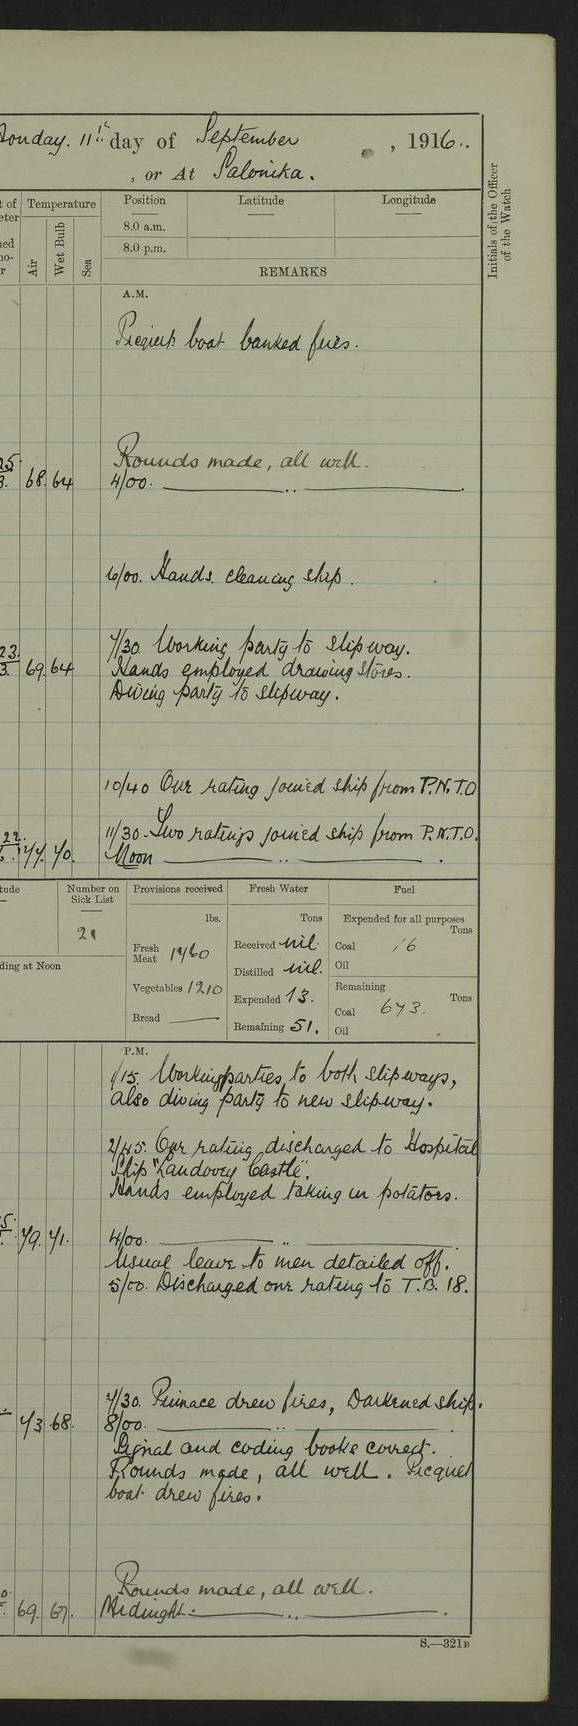 Monday. 11th day of September , 1916.
, or At Salonika.
Initials of the Officer
of the Watch
Temperature
Air
Wet Bulb
Sea
Position
Latitude
Longitude
8.0 a.m.
8.0 p.m.
REMARKS
A.M.
Picquet boat banked fires.
Rounds made, all well.
68. 64
4/00.
6/00. Hands cleaning ship.
7/30 Working party to slipway.
69. 64
Hands employed drawing stores.
Diving party to slipway.
10/40 One rating joined ship from P.N.T.O
11/30. Two ratings joined ship from P.N.T.O.
77. 70.
Noon
Number on
Sick List
21
Provisions received
lbs.
Fresh
Meat 1760
Vegetables 1210
Bread
Fresh Water
Tons
Received nil.
Distilled nil.
Expended 13.
Remaining 51.
Fuel
Expended for all purposes
Tons
Coal 16
Oil
Remaining
Tons
Coal 673.
Oil
ding at Noon
P.M.
1/15. Working parties to both slipways,
also diving party to new slipway.
2/45. One rating discharged to Hospital
Ship "Llandovery Castle".
Hands employed taking in potatoes.
79. 71.
4/00.
Usual leave to men detailed off.
5/00. Discharged one rating to T.B. 18.
7/30. Pinnace drew fires, Darkened ship.
73 68.
8/00.
Signal and coding books correct.
Rounds made, all well. Picquet
boat drew fires.
Rounds made, all well.
69. 67.
Midnight.
S.—321B